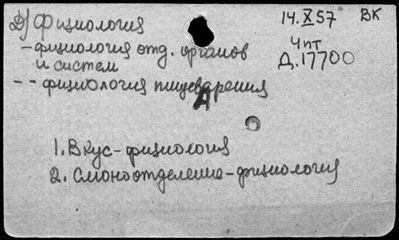 D) Физиология
14.X57 ВК
- физиология отд. органов и систем
Чпт
Д.17700
-- физиология пищеварения
А
1. Вкус - физиология
2. Слюноотделение - физиология